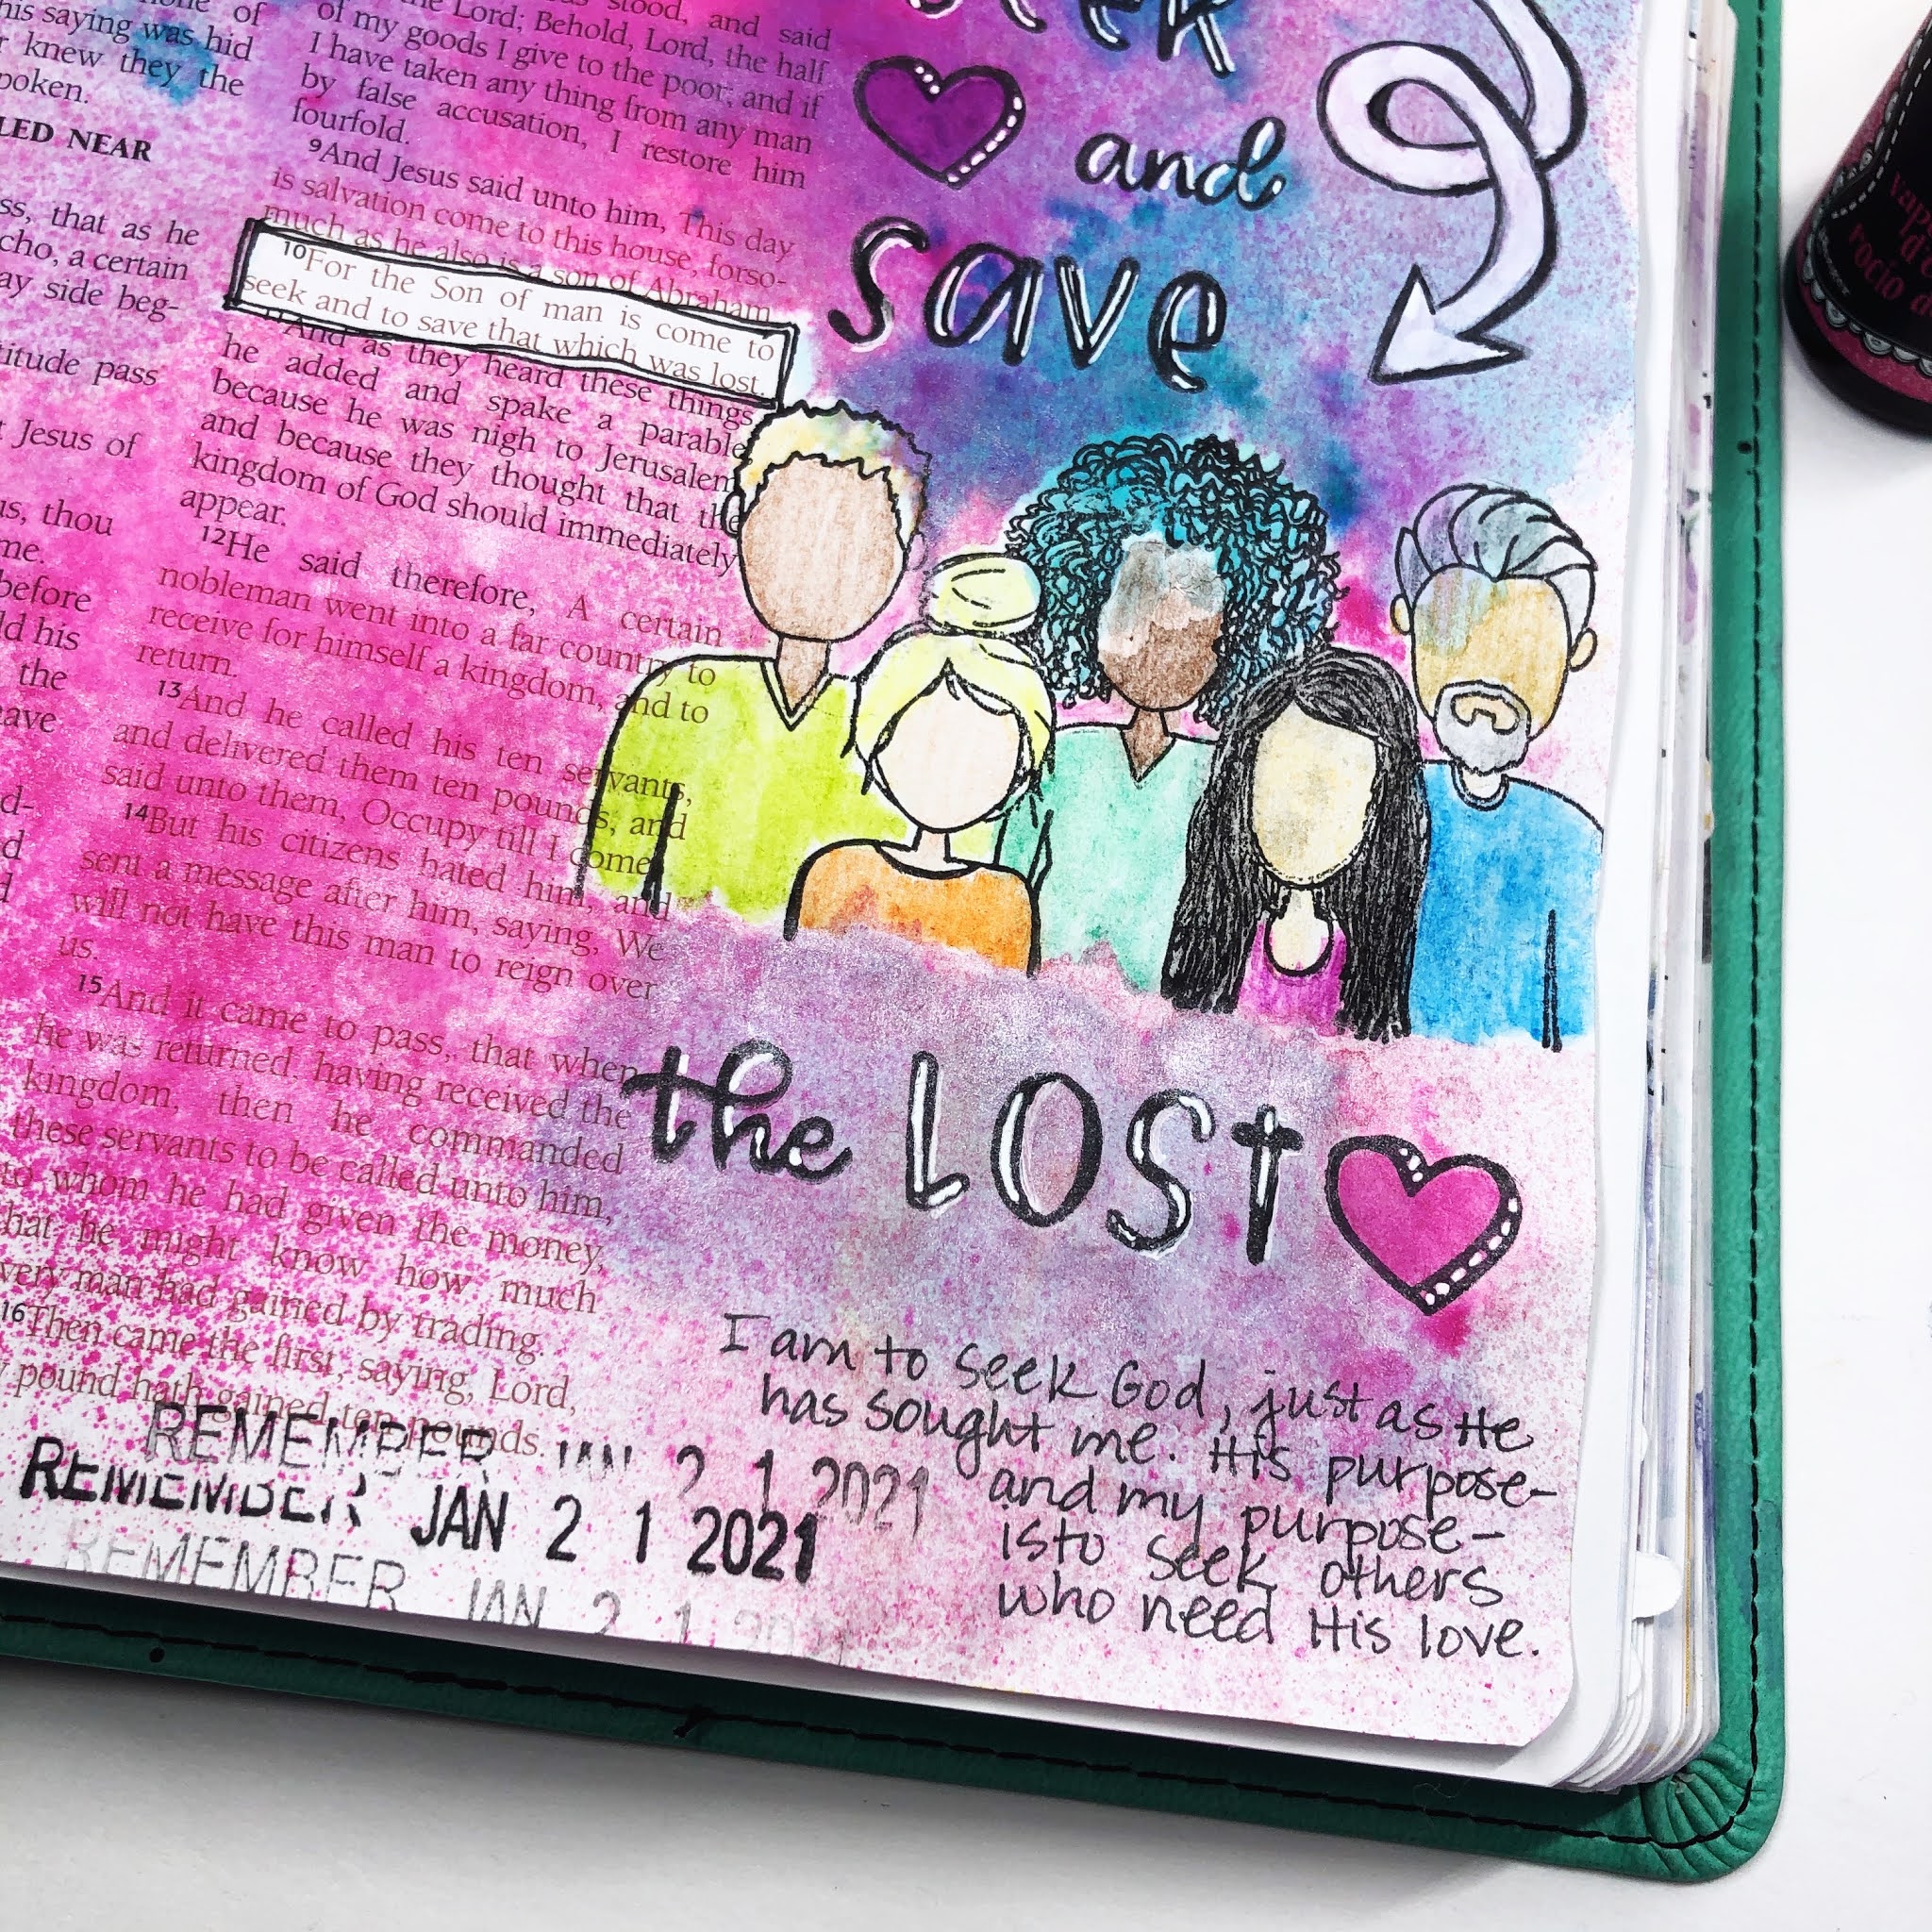 of
his saying was hid
knew they the
poken.
LED NEAR
ss, that as he
cho, a certain
ay side beg-
titude pass
Jesus of
us, thou
me.
before
ld his
the
ave
d-
d
d
stood, and said
the Lord; Behold, Lord, the half
of my goods I give to the poor; and if
I have taken any thing from any man
by false accusation, I restore him
fourfold.
9And Jesus said unto him, This day
is salvation come to this house, forso-
much as he also is a son of Abraham.
10For the Son of man is come to
seek and to save that which was lost.
11And as they heard these things,
he added and spake a parable,
because he was nigh to Jerusalem,
and because they thought that the
kingdom of God should immediately
appear.
12He said therefore, A certain
nobleman went into a far country to
receive for himself a kingdom, and to
return.
13And he called his ten servants,
and delivered them ten pounds, and
said unto them, Occupy till I come.
14But his citizens hated him, and
sent a message after him, saying, We
will not have this man to reign over
us.
15And it came to pass, that when
he was returned, having received the
kingdom, then he commanded
these servants to be called unto him,
to whom he had given the money,
that he might know how much
every man had gained by trading.
16Then came the first, saying, Lord,
pound hath gained ten pounds.
and
save
the LOST
I am to seek God, just as He
has sought me. His purpose-
and my purpose-
is to seek others
who need His love.
REMEMBER JAN 2 1 2021
REMEMBER JAN 2 1 2021
REMEMBER JAN 2 1 2021
rocio